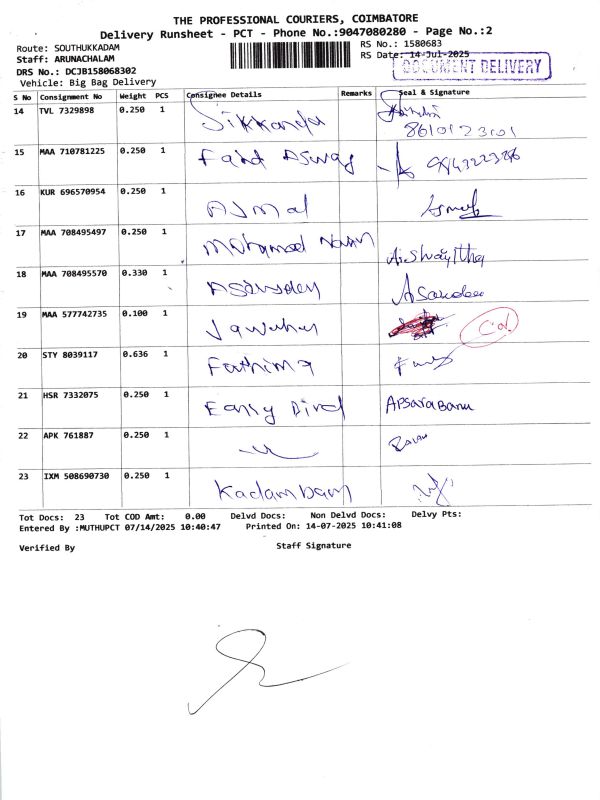 THE PROFESSIONAL COURIERS, COIMBATORE
Delivery Runsheet - PCT - Phone No.:9047080280 - Page No.:2
Route: SOUTHUKKADAM
RS No.: 1580683
Staff: ARUNACHALAM
RS Date: 14-Jul-2025
DOCUMENT DELIVERY
DRS No.: DCJB158068302
Vehicle: Big Bag Delivery
S No Consignment No Weight PCS Consignee Details Remarks Seal & Signature
14 TVL 7329898 0.250 1 Sikkandar
8610123101
15 MAA 710781225 0.250 1
16 KUR 696570954 0.250 1 AJmal
17 MAA 708495497 0.250 1 Mohamed
18 MAA 708495570 0.330 1
19 MAA 577742735 0.100 1
20 STY 8039117 0.636 1 Fathima
21 HSR 7332075 0.250 1 Easy Bird APsara Banu
22 APK 761887 0.250 1
23 IXM 508690730 0.250 1 Kadambam
Tot Docs: 23 Tot COD Amt: 0.00 Delvd Docs: Non Delvd Docs: Delvy Pts:
Entered By :MUTHUPCT 07/14/2025 10:40:47 Printed On: 14-07-2025 10:41:08
Verified By Staff Signature